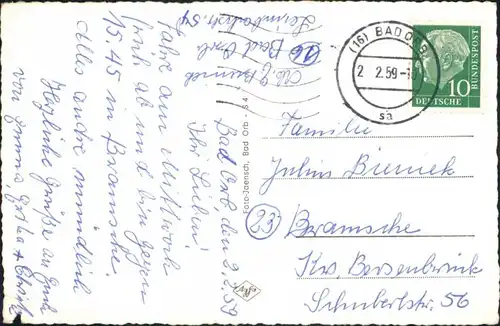 Abs. E. Bienick
(16) Bad Orb
Leimbachstr. 54
Bad Orb, den 2.2.59
Ihr Lieben!
Fahre am Mittwoch
früh ab und bin gegen
15.45 in Bramsche.
Alles andre mündlich
Herzliche Grüße an Euch
von Emma,
Foto-Joensch, Bad Orb - S4
(16) BAD ORB
2 2.59-1
sa
DEUTSCHE
BUNDESPOST
10
Familie
Julius Bienick
(23) Bramsche
Krs. Bersenbrück
Schubertstr. 56